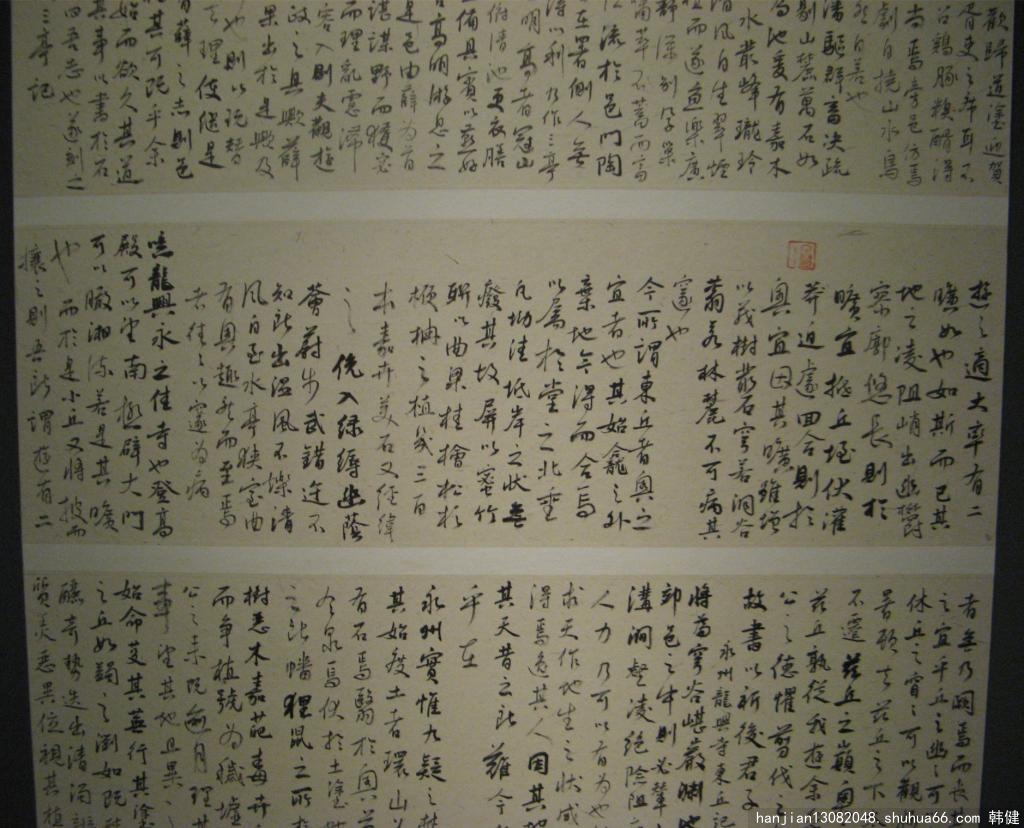 歡歸道塗迎賀
胥吏之席耳不
召雞豚糗醑得
當焉旁邑仿焉
劇自撓山水鳥
然自若也
驅群畜決疏
剔山麓萬石如
島池爰有嘉木
水叢峰瓏玲
清風自生翠煙
植而遂魚樂廣
靜深別孕巢
嘯萃不蓄而富
流於邑門陶
在署側人無
得以利乃作三亭
明高者冠山
俯清池更衣膳
備具賓以燕好
高明游息之
是邑由薛為首
諶謀野而獲宓
而理亂慮滯
容入則夫觀游
政之具歟薛
果出於是歟及
也則以玩替
理使繼是
有薛之志則邑
其可既乎余
始而欲久其道
其事以書於石
吾志也遂刻之
三亭記
遊之適大率有二
曠如也如斯而已其
地之凌阻峭出幽鬱
寥廓悠長則於
曠宜抵丘垤伏灌
莽迫遽回合則於
奧宜因其曠雖增
以茂樹叢石穹若洞谷
蓊若林麓不可病其
邃也
今所謂東丘者奧之
宜者也其始龕之外
棄地余得而合焉
以屬於堂之北垂
凡坳洼坻岸之狀無
廢其故屏以密竹
聯以曲梁桂檜松杉
楩柟之植幾三百
本嘉卉美石又經緯
之俛入綠縟幽蔭
薈蔚步武錯迕不
知所出溫風不爍清
風自至水亭陿室曲
有奧趣然而至焉
者往往以邃為病
噫龍興永之佳寺也登高
殿可以望南極闢大門
可以瞰湘流若是其曠
也而於是小丘又將披而
攘之則吾所謂遊有二
者無乃闕焉而喪
之宜乎丘之幽幽可
休丘之窅窅可以觀
暑頓去茲丘之下
不遷茲丘之巔奧
茲丘孰從我遊余
公之德懼翦伐之
故書以祈後君子
永州龍興寺東丘記
將為穹谷嵁巖淵池
郊邑之中則必輦
溝澗壑凌絕險阻
人力乃可以有為也
求天作地生之狀咸
得焉逸其人因其地
其天昔云所難今
乎在
永州實惟九疑之麓
其始度土者環山以
有石焉翳於奧草
有泉焉伏於土塗
之所蟠狸鼠之所
樹惡木嘉葩毒卉
而爭植號為穢墟
公之來既逾月理
事望其地且異之
始命芟其蕪行其塗
之丘如蠲之瀏如既
醲奇勢迭出清濁辨
質美惡異位視其植
hanjian13082048. shuhua66. com 韩健